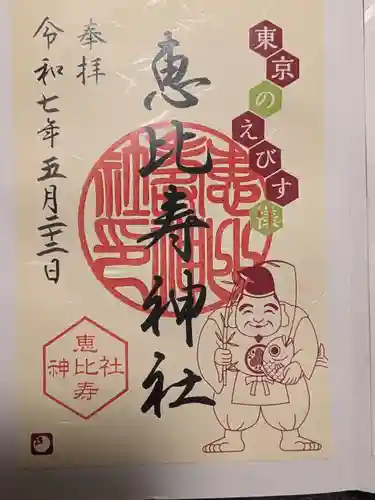 東京のえびす様
奉拝
恵比寿神社
令和七年五月二十三日
恵比寿
神社